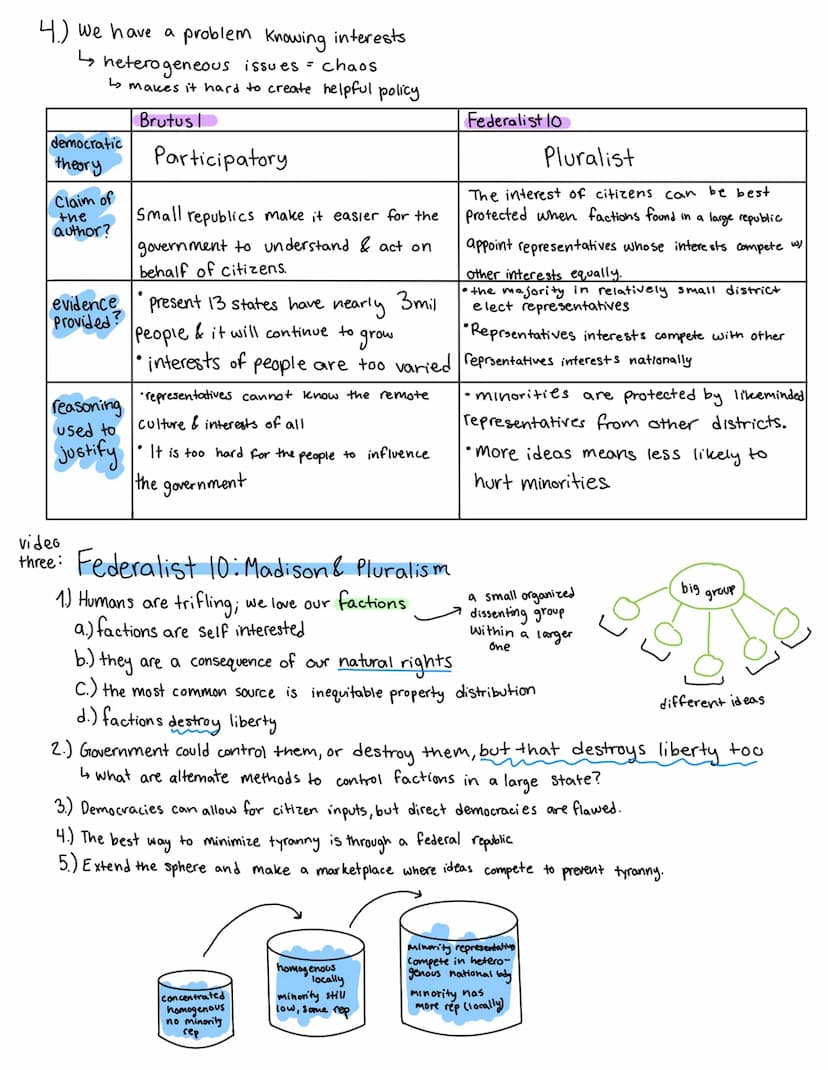 4.) We have a problem knowing interests
↳ heterogeneous issues = chaos
↳ makes it hard to create helpful policy
Brutus 1
Federalist 10
democratic
theory
Participatory
Pluralist
Claim of
the
author?
Small republics make it easier for the
government to understand & act on
behalf of citizens.
The interest of citizens can be best
protected when factions found in a large republic
appoint representatives whose interests compete w/
other interests equally.
evidence
provided?
• Present 13 states have nearly 3mil
people & it will continue to grow
• interests of people are too varied
• the majority in relatively small district
elect representatives
• Reprsentatives interests compete with other
reprsentatives interests nationally
reasoning
used to
justify
• representatives cannot know the remote
culture & interests of all
• It is too hard for the people to influence
the government
• minorities are protected by likeminded
representatives from other districts.
• More ideas means less likely to
hurt minorities
video
three: Federalist 10: Madison & Pluralism
1.) Humans are trifling; we love our factions
a small organized
dissenting group
within a larger
one
big group
different ideas
a.) factions are self interested
b.) they are a consequence of our natural rights
c.) the most common source is inequitable property distribution
d.) factions destroy liberty
2.) Government could control them, or destroy them, but that destroys liberty too
↳ What are alternate methods to control factions in a large state?
3.) Democracies can allow for citizen inputs, but direct democracies are flawed.
4.) The best way to minimize tyranny is through a federal republic
5.) Extend the sphere and make a marketplace where ideas compete to prevent tyranny.
concentrated
homogenous
no minority
rep
homogenous
locally
minority still
low, some rep
minority representatives
compete in hetero-
genous national body
minority has
more rep (locally)